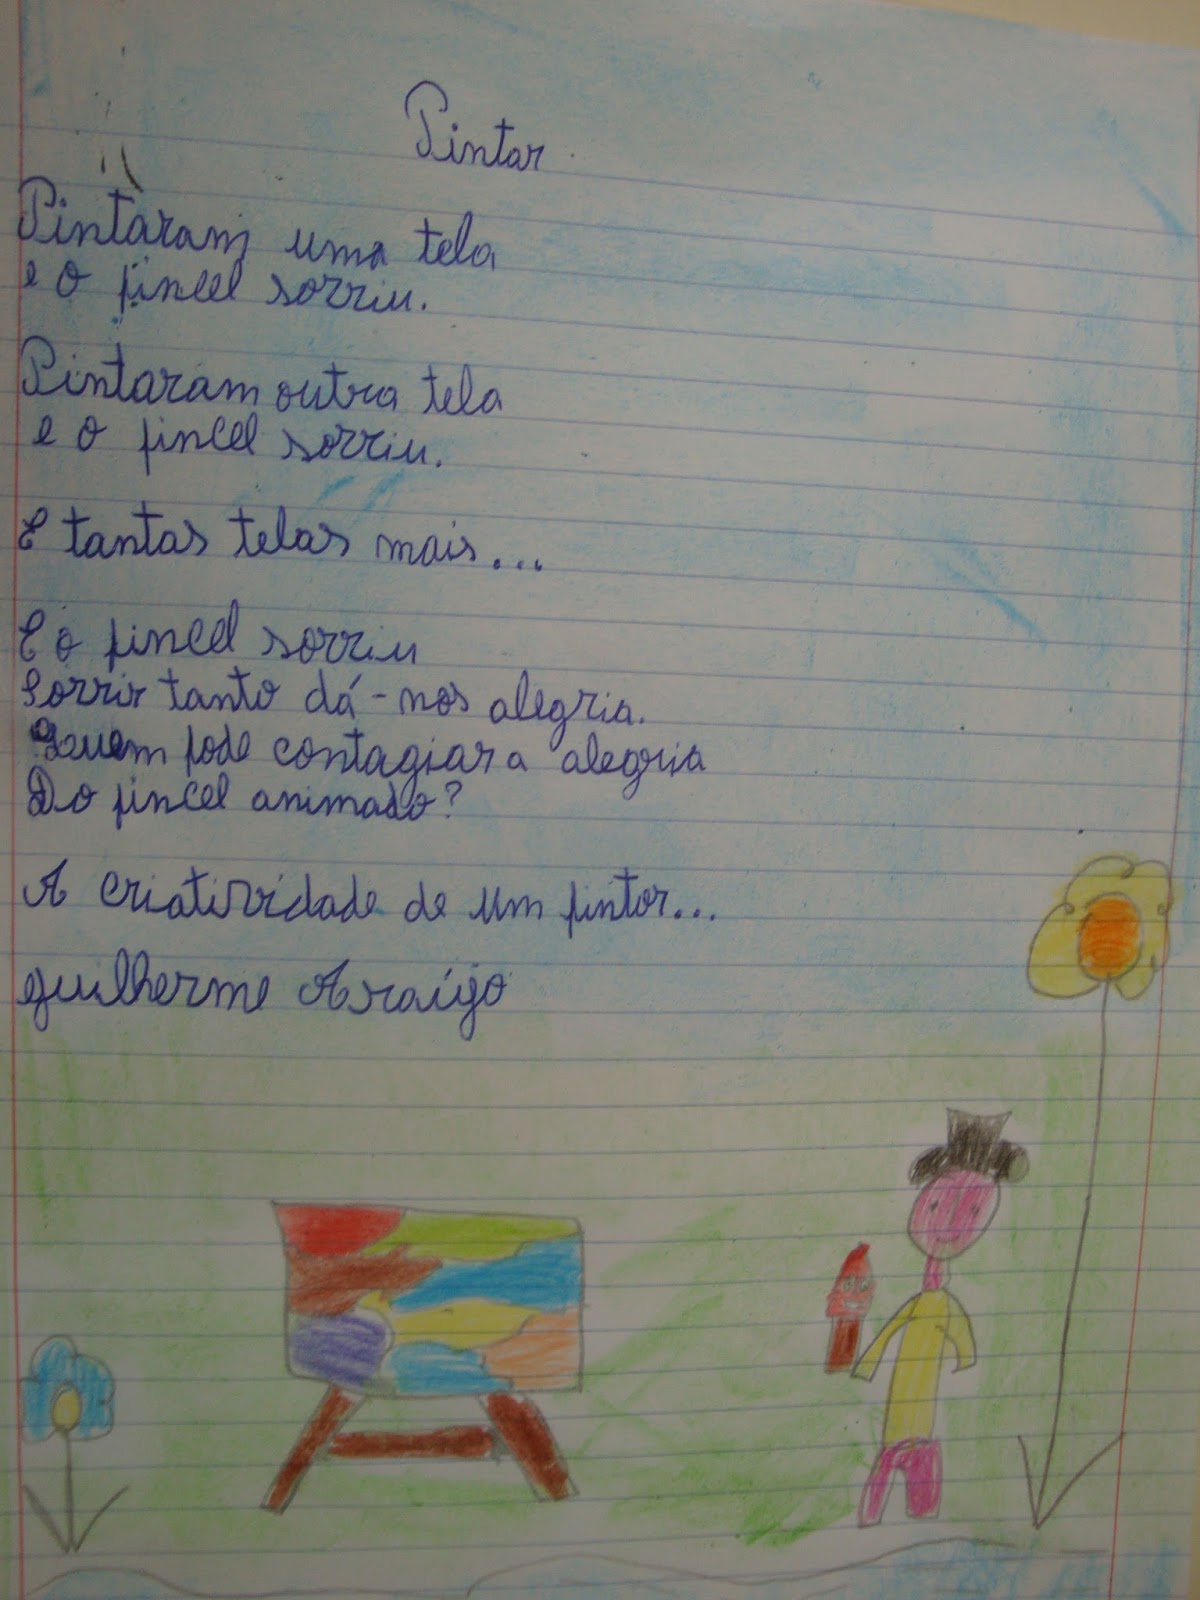 Pintar
Pintaram uma tela
e o pincel sorriu.
Pintaram outra tela
e o pincel sorriu.
E tantas telas mais...
E o pincel sorriu
Sorrir tanto dá-nos alegria.
Quem pode contagiar a alegria
Do pincel animado?
A criatividade de um pintor...
Guilherme Araújo